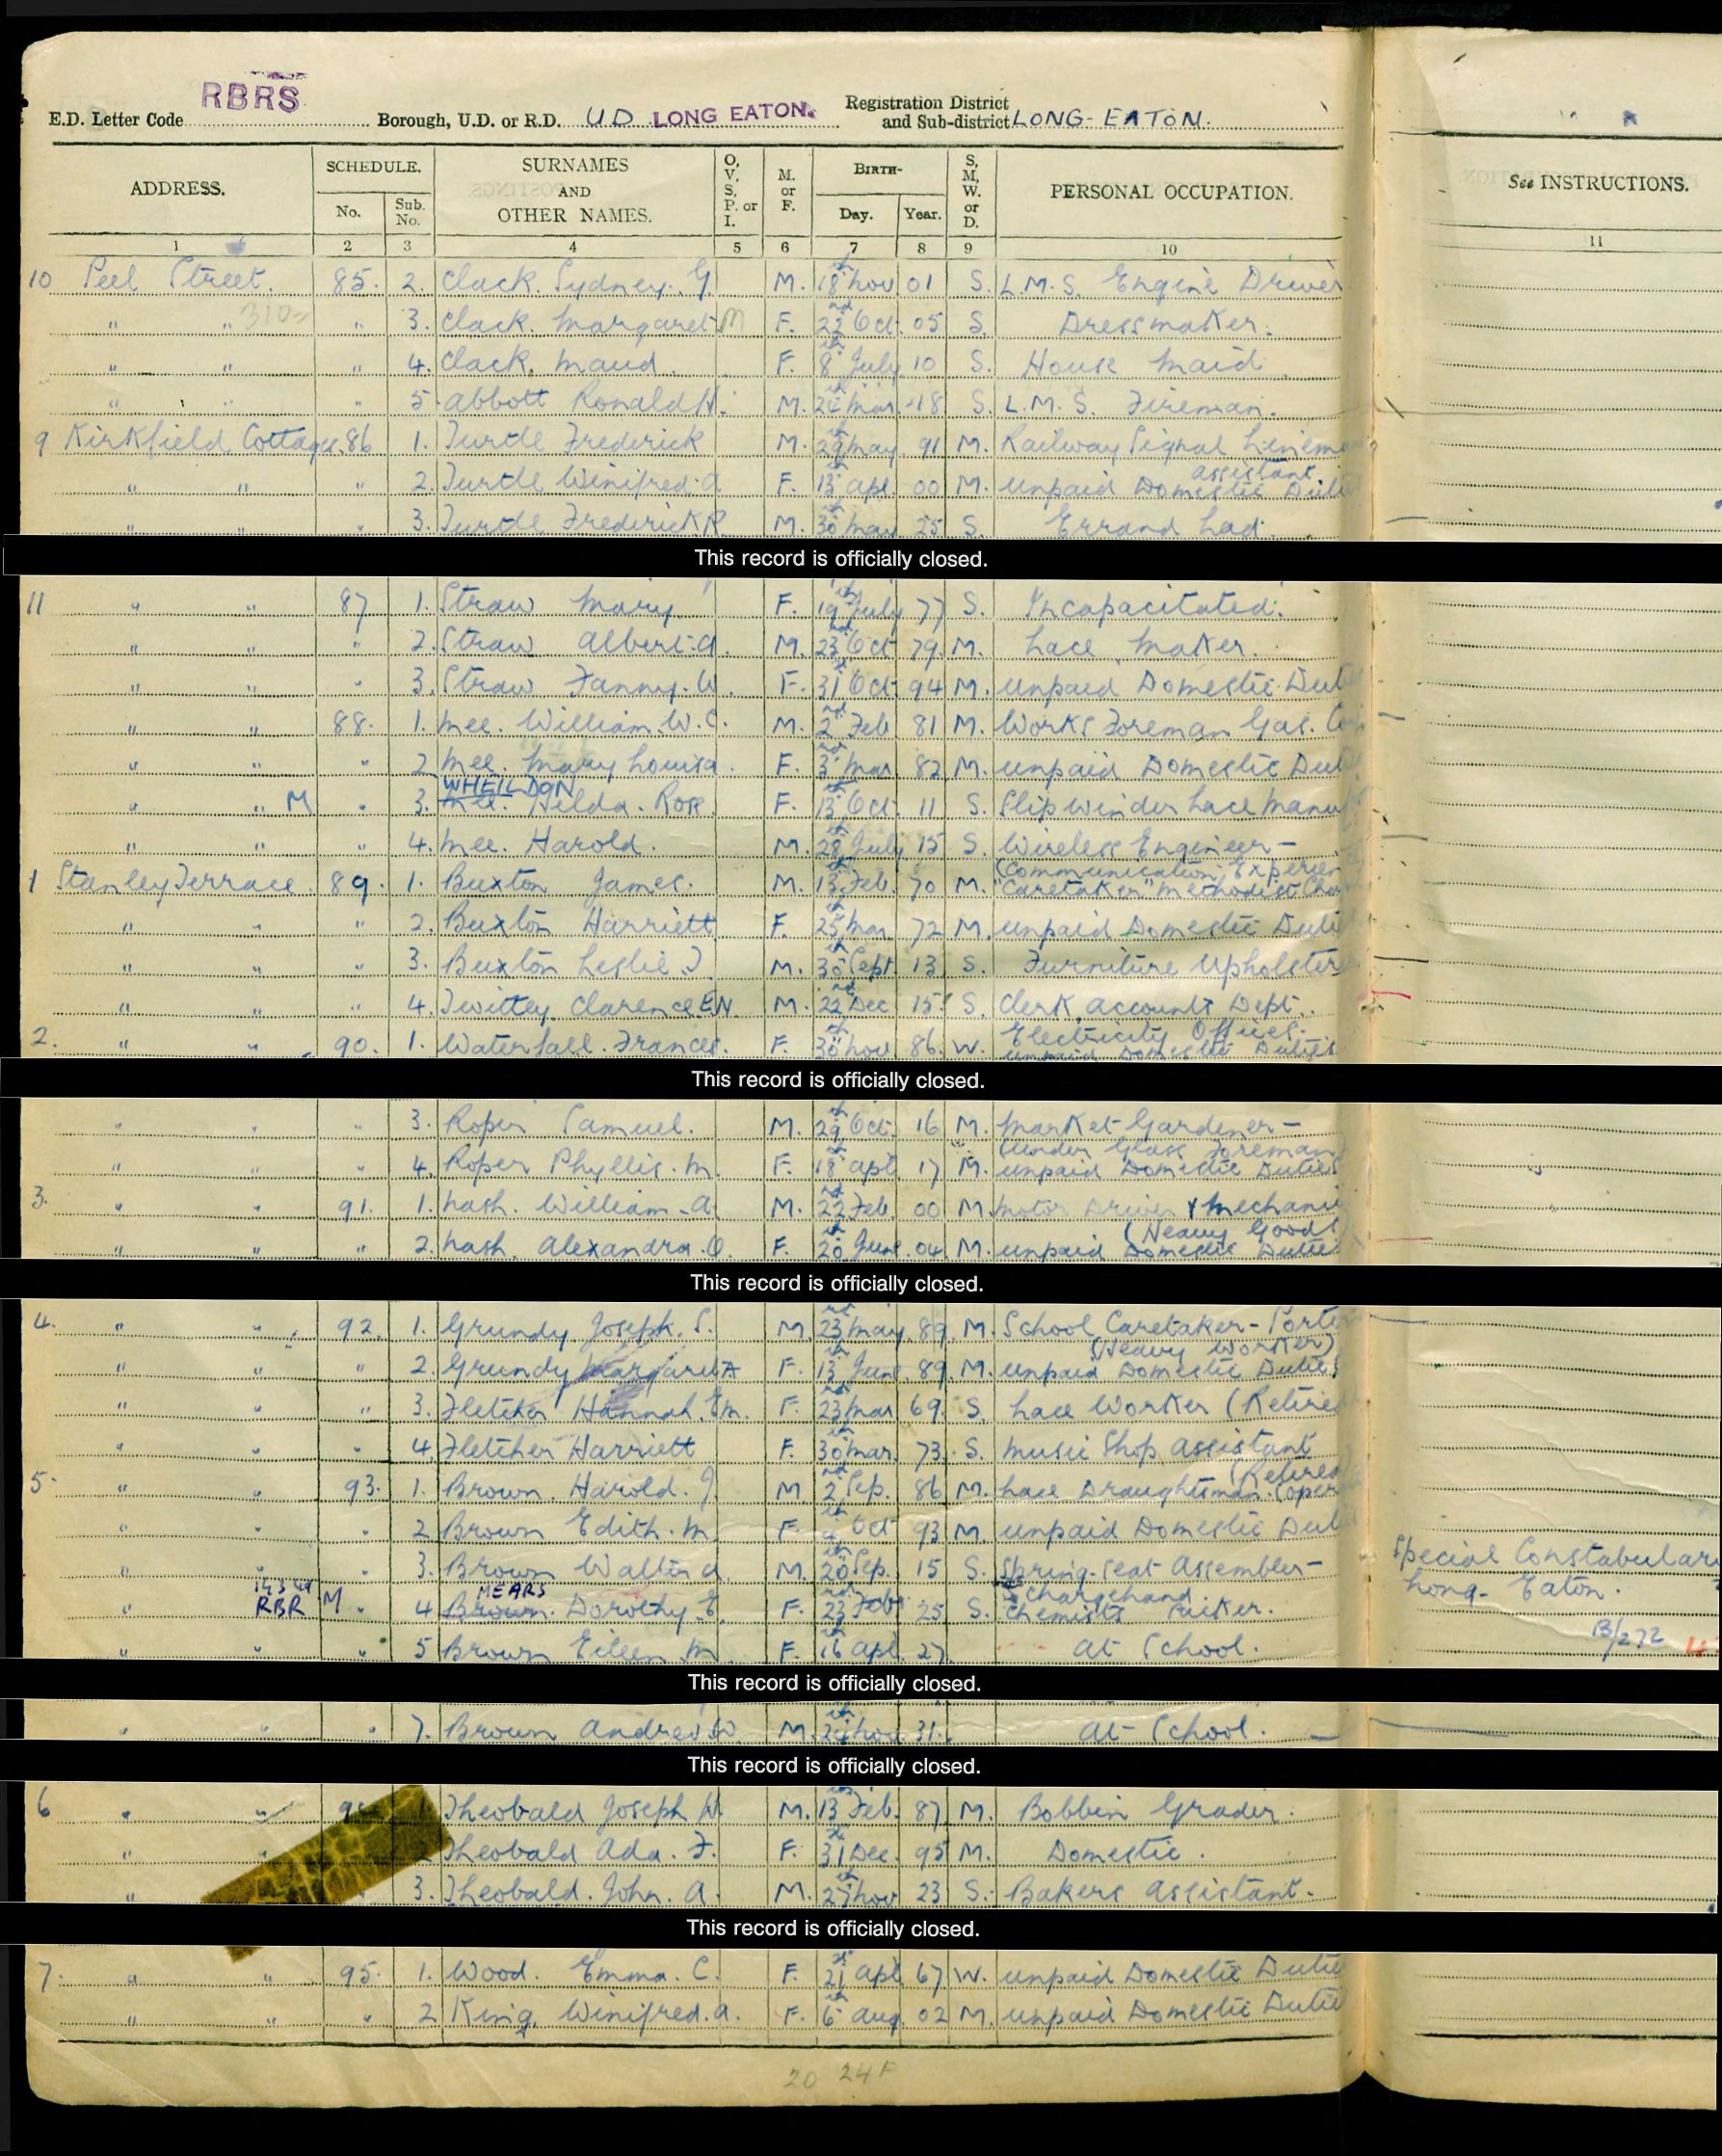 RBRS
E.D. Letter Code Borough, U.D. or R.D. U D LONG EATON. Registration District and Sub-district LONG-EATON.
ADDRESS. SCHEDULE. No. Sub. No. SURNAMES AND OTHER NAMES. O, V, S, P. or I. M. or F. BIRTH- Day. Year. S, M, W. or D. PERSONAL OCCUPATION. See INSTRUCTIONS.
1 2 3 4 5 6 7 8 9 10 11
10 Peel Street. 85. 2. Clack. Sydney. G. M. 18th Nov 01 S. L.M.S. Engine Driver
" " 310 " 3. Clack. Margaret M F. 23rd Oct. 05 S. Dressmaker.
" " " 4. Clack. Maud. F. 8th July 10 S. House Maid
" " " 5. Abbott Ronald H. M. Mar. 18 S. L.M.S. Fireman.
9 Kirkfield Cottages. 86 1. Turtle Frederick M. 29th May 91 M. Railway Signal Linema
assistant.
" " " 2. Turtle Winifred. A F. 13th Apl. 00 M. Unpaid Domestic Duti
" " " 3. Turtle Frederick R M. 30th May 25 S. Errand Lad.
This record is officially closed.
11 " " 87 1. Straw Mary F. 19th July 77 S. Incapacitated.
" " " 2. Straw Albert. A. M. 23rd Oct 79. M. Lace Maker.
" " " 3. Straw Fanny. W. F. 31st Oct 94 M. Unpaid Domestic Dut
" " 88. 1. Mee. William. W. C. M. 2nd Feb 81 M. Works Foreman Gas. Co
" " " 2 Mee. Mary Louisa. F. 3rd Mar 82 M. Unpaid Domestic Dut
WHEILDON
" " M " 3. Mee. Hilda. Rose F. 13th Oct. 11 S. Slip winder Lace Manu
" " " 4. Mee. Harold. M. 28th July 15 S. Wireless Engineer -
(Communication Experien
1 Stanley Terrace 89. 1. Buxton James. M. 13th Feb. 70 M. "Caretaker" Methodist Cha
" " " 2. Buxton Harriett F. 25th Mar. 72 M. Unpaid Domestic Duti
" " " 3. Buxton Leslie. J. M. 30th Sept. 13 S. Furniture Upholster
" " " 4. Twittey Clarence E N. M. 22nd Dec 15. S. Clerk, Accounts Dept.
Electricity Offices.
2. " " 90. 1. Waterfall. Frances. F. 30th Nov 86. W. Unpaid Domestic Duties
This record is officially closed.
" " " 3. Roper Samuel. M. 29th Oct. 16 M. Market Gardener -
(Under Glass Foreman)
" " " 4. Roper Phyllis. M. F. 18th Apl 17 M. Unpaid Domestic Duties
3. " " 91. 1. Nash. William. A M. 22nd Feb. 00 M. Motor Driver & Mechanic
(Heavy Goods)
" " " 2. Nash. Alexandra. O. F. 20th June. 04 M. Unpaid Domestic Duties
This record is officially closed.
4. " " 92. 1. Grundy. Joseph. S. M. 23rd May. 89. M. School Caretaker - Porter
(Heavy Worker)
" " " 2. Grundy Margaret A F. 13th June. 89. M. Unpaid Domestic Duties
" " " 3. Fletcher Hannah. Em. F. 23rd Mar 69. S. Lace Worker (Retired
" " " 4. Fletcher Harriett F. 30th Mar. 73. S. Music Shop Assistant
(Retired)
5. " " 93. 1. Brown. Harold. J. M. 2nd Sep. 86 M. Lace Draughtsman. (oper
" " " 2 Brown Edith. M. F. 4th Oct 93 M. Unpaid Domestic Dut
" " " 3. Brown Walter A. M. 20th Sep. 15 S. Spring-Seat Assembler - Special Constabular
Chargehand. Long-Eaton.
MEARS
" RBR M " 4 Brown. Dorothy. E. F. 23rd Feb 25 S. Chemists Packer.
B/272
" " " 5 Brown Eileen. M. F. 16th Apl. 27. At School.
This record is officially closed.
" " " 7. Brown Andrew W. M. 24th Nov. 31. At School.
This record is officially closed.
6 " " Theobald Joseph W. M. 13th Feb. 87 M. Bobbin Grader.
" " Theobald Ada. F. F. 31st Dec. 95 M. Domestic.
" 3. Theobald. John. A. M. 27th Nov 23 S. Bakers Assistant.
This record is officially closed.
7. " " 95. 1. Wood. Emma. C. F. 21st Apl 67 W. Unpaid Domestic Dutie
" " " 2 King. Winifred. A. F. 6th Aug. 02 M. Unpaid Domestic Dutie
20 24F